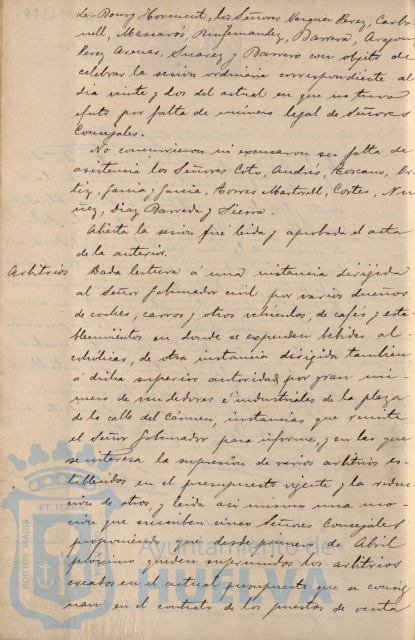 de Bourg Hormint, los Señores Vazquez Perez, Carbo
nell, Mascarós, Renfernandez, Barrera, Aragon
Perez Arenas, Suarez y Barrero con objeto de
celebrar la sesion ordinaria correspondiente al
dia veinte y dos del actual en que no tuvo
efecto por falta de número legal de Señores
Concejales.
No concurrieron ni excusaron su falta de
asistencia los Señores Coto, Andrés, Toscano, Or
tiz, Garcia y Garcia, Torres Martrell, Cortes, Nu
ñez, Diaz Barreda y Sierra.
Abierta la sesion fué leida y aprobada el acta
de la anterior.
Arbitrios
Dada lectura á una instancia dirigida
al Señor Gobernador civil por varios dueños
de coches, carros y otros vehículos, de cafés y esta
blecimientos en donde se expenden bebidas al
cohólicas, de otra instancia dirigida tambien
á dicha superior autoridad por gran nú
mero de vendedores é industriales de la plaza
de la calle del Cármen, instancias que remite
el Señor Gobernador para informe, y en las que
se interesa la supresion de varios arbitrios es
tablecidos en el presupuesto vigente y la reduc
cion de otros, y leida asi mismo una mo
cion que suscriben cinco Señores Concejales
proponiendo que desde primero de Abril
próximo queden suprimidos los arbitrios
creados en el actual presupuesto que se consig
nan en el contrato de los puestos de venta
Ayuntamiento de
HUELVA
PORTUS MARIS
ET TERR